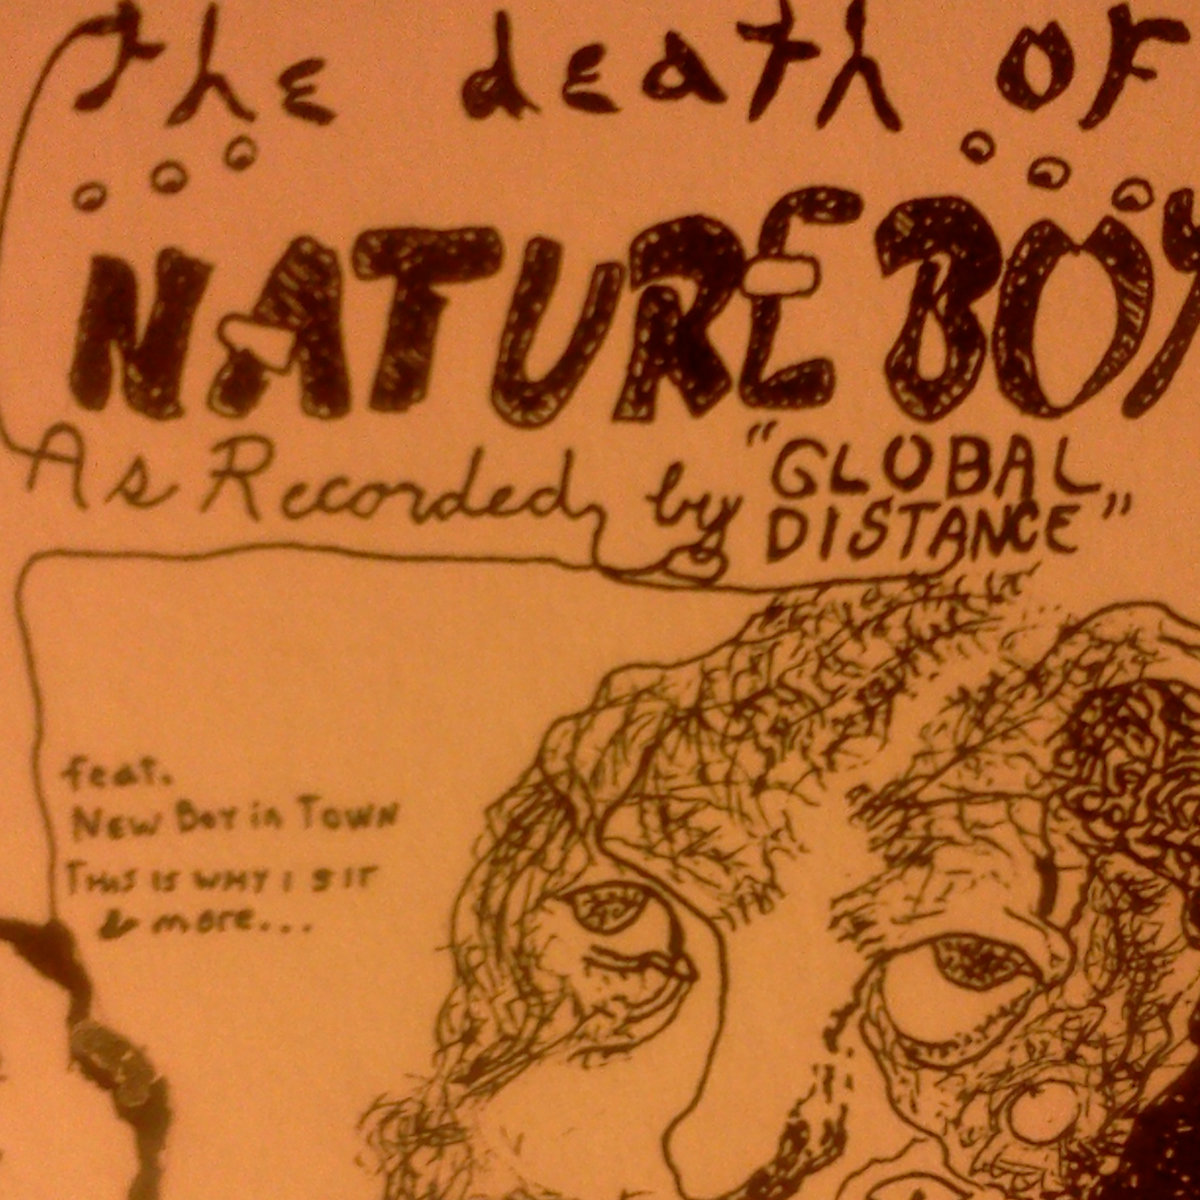 the death of
NATURE BOY
As Recorded by "GLOBAL DISTANCE"
feat.
NEW BOY in TOWN
THIS IS WHY I SIT
& more...